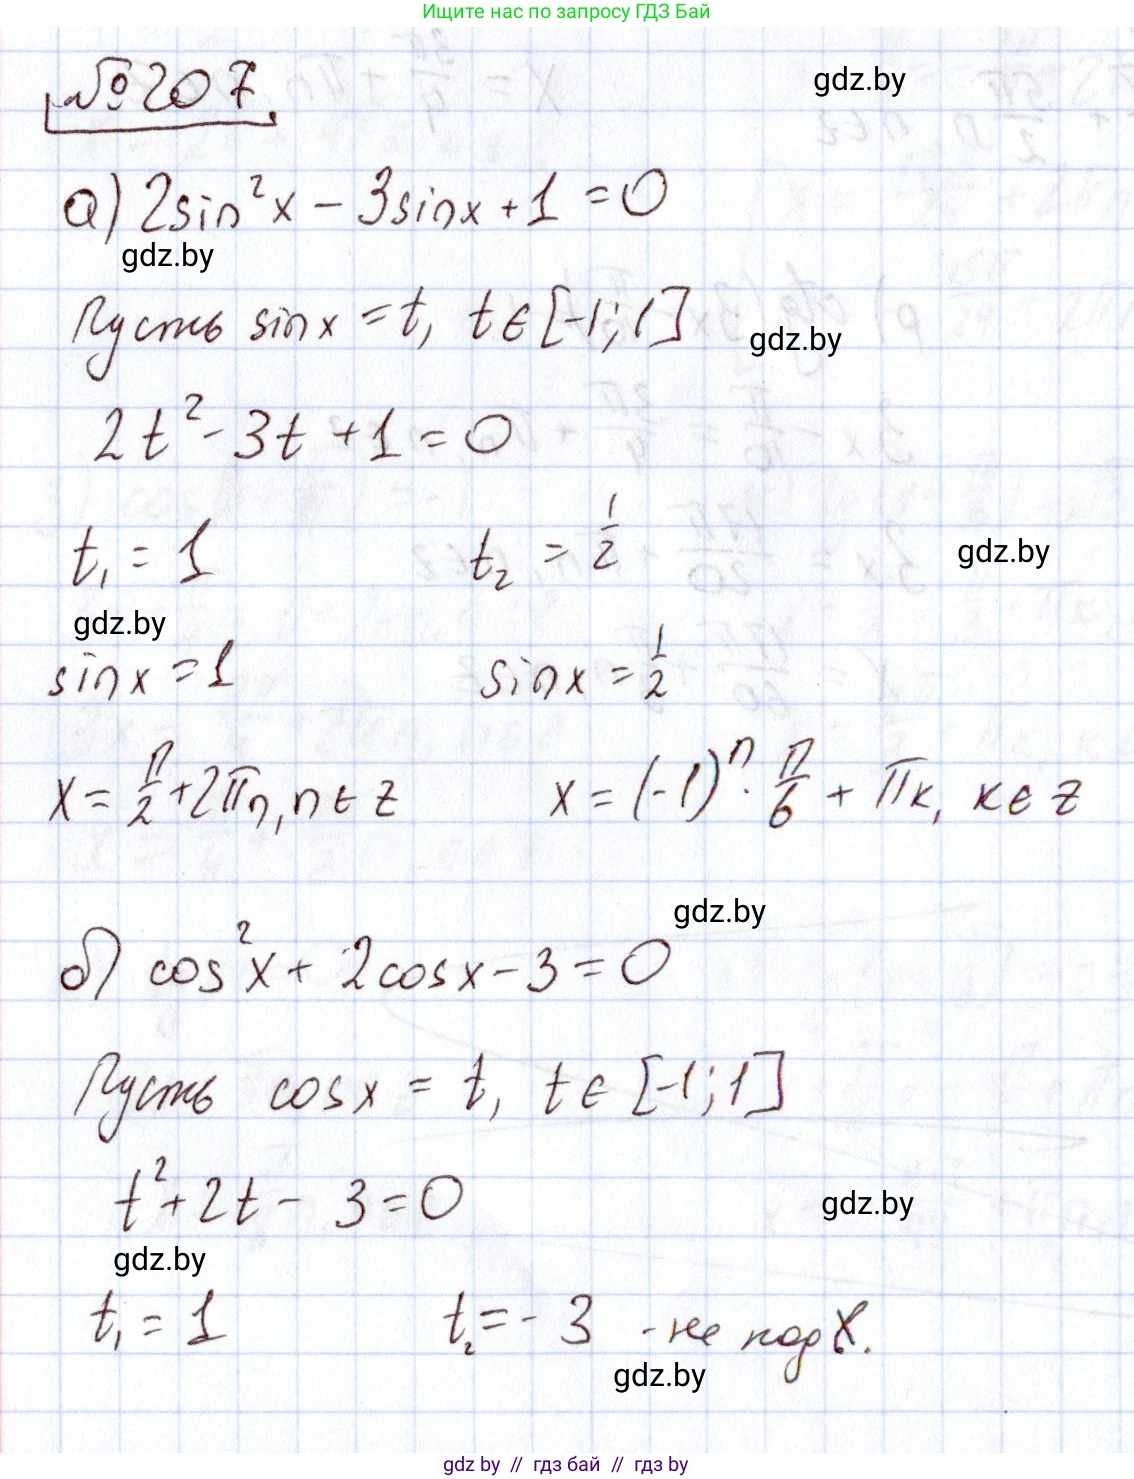 Ищите нас по запросу ГДЗ Бай
№207
gdz.by
а) 2sin²x − 3sinx + 1 = 0
gdz.by
Пусть sinx = t, t ∈ [-1; 1]
gdz.by
2t² - 3t + 1 = 0
t₁ = 1 t₂ = 1/2
gdz.by
gdz.by
sinx = 1 sinx = 1/2
x = π/2 + 2πn, n ∈ z x = (-1)ⁿ · π/6 + πk, k ∈ z
gdz.by
б) cos²x + 2cosx − 3 = 0
Пусть cosx = t, t ∈ [-1; 1]
t² + 2t − 3 = 0
gdz.by
gdz.by
t₁ = 1 t₂ = - 3 - не подх.
gdz.by
gdz by // гдз бай // гдз by